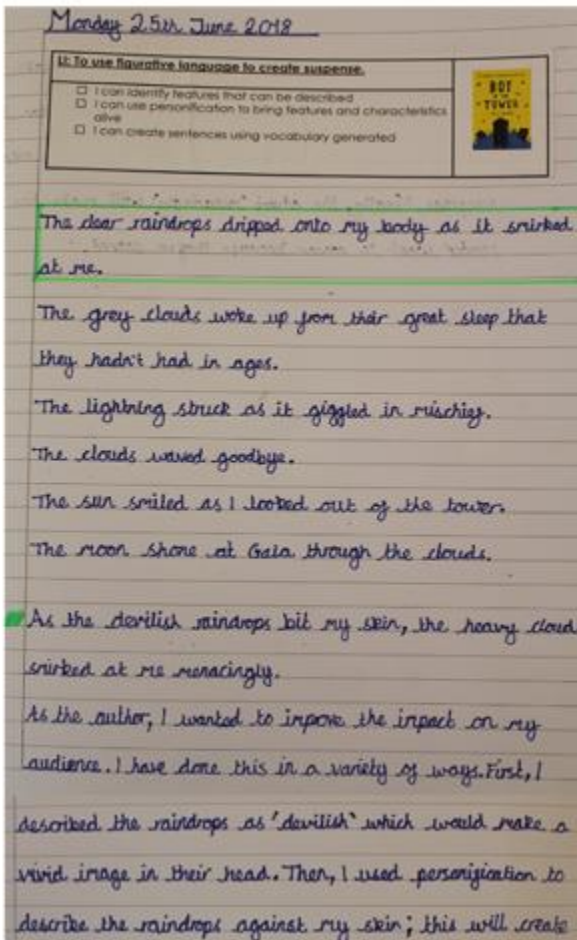 Monday 25th June 2018
LI: To use figurative language to create suspense.
I can identify features that can be described
I can use personification to bring features and characteristics
alive
I can create sentences using vocabulary generated
BOY
IN THE
TOWER
The clear raindrops dripped onto my body as it smirked
at me.
The grey clouds woke up from their great sleep that
they hadn't had in ages.
The lightning struck as it giggled in mischief.
The clouds waved goodbye.
The sun smiled as I looked out of the tower.
The moon shone at Gaia through the clouds.
As the devilish raindrops bit my skin, the heavy cloud
smirked at me menacingly.
As the author, I wanted to improve the impact on my
audience. I have done this in a variety of ways. First, I
described the raindrops as 'devilish' which would make a
vivid image in their head. Then, I used personification to
describe the raindrops against my skin; this will create